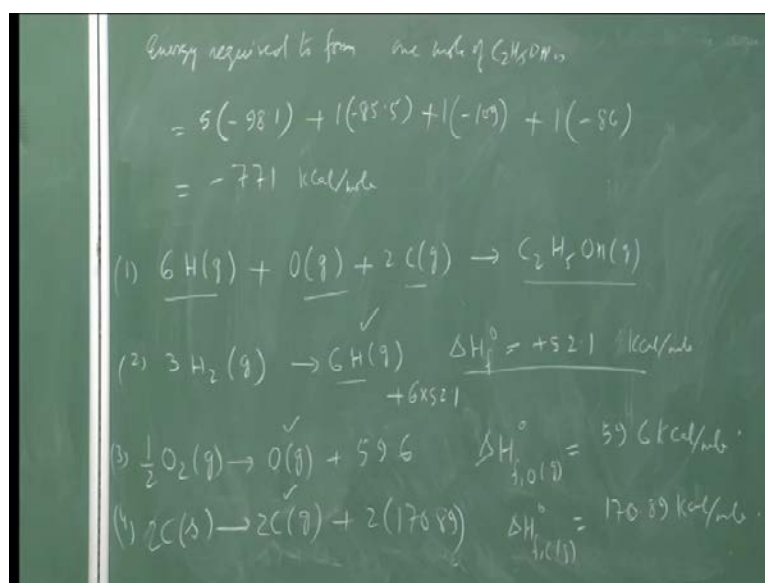 Energy required to form one mole of C₂H₅OH is
= 5(-98.1) + 1(-85.5) + 1(-109) + 1(-86)
= -771 kcal/mole
(1) 6H(g) + O(g) + 2C(g) → C₂H₅OH(g)
(2) 3H₂(g) → 6H(g) ΔH°f = +52.1 kcal/mole.
+6×52.1
(3) ½O₂(g) → O(g) + 59.6 ΔH°f,O(g) = 59.6 kcal/mole.
(4) 2C(s) → 2C(g) + 2(170.89) ΔH°f,C(g) = 170.89 kcal/mole.